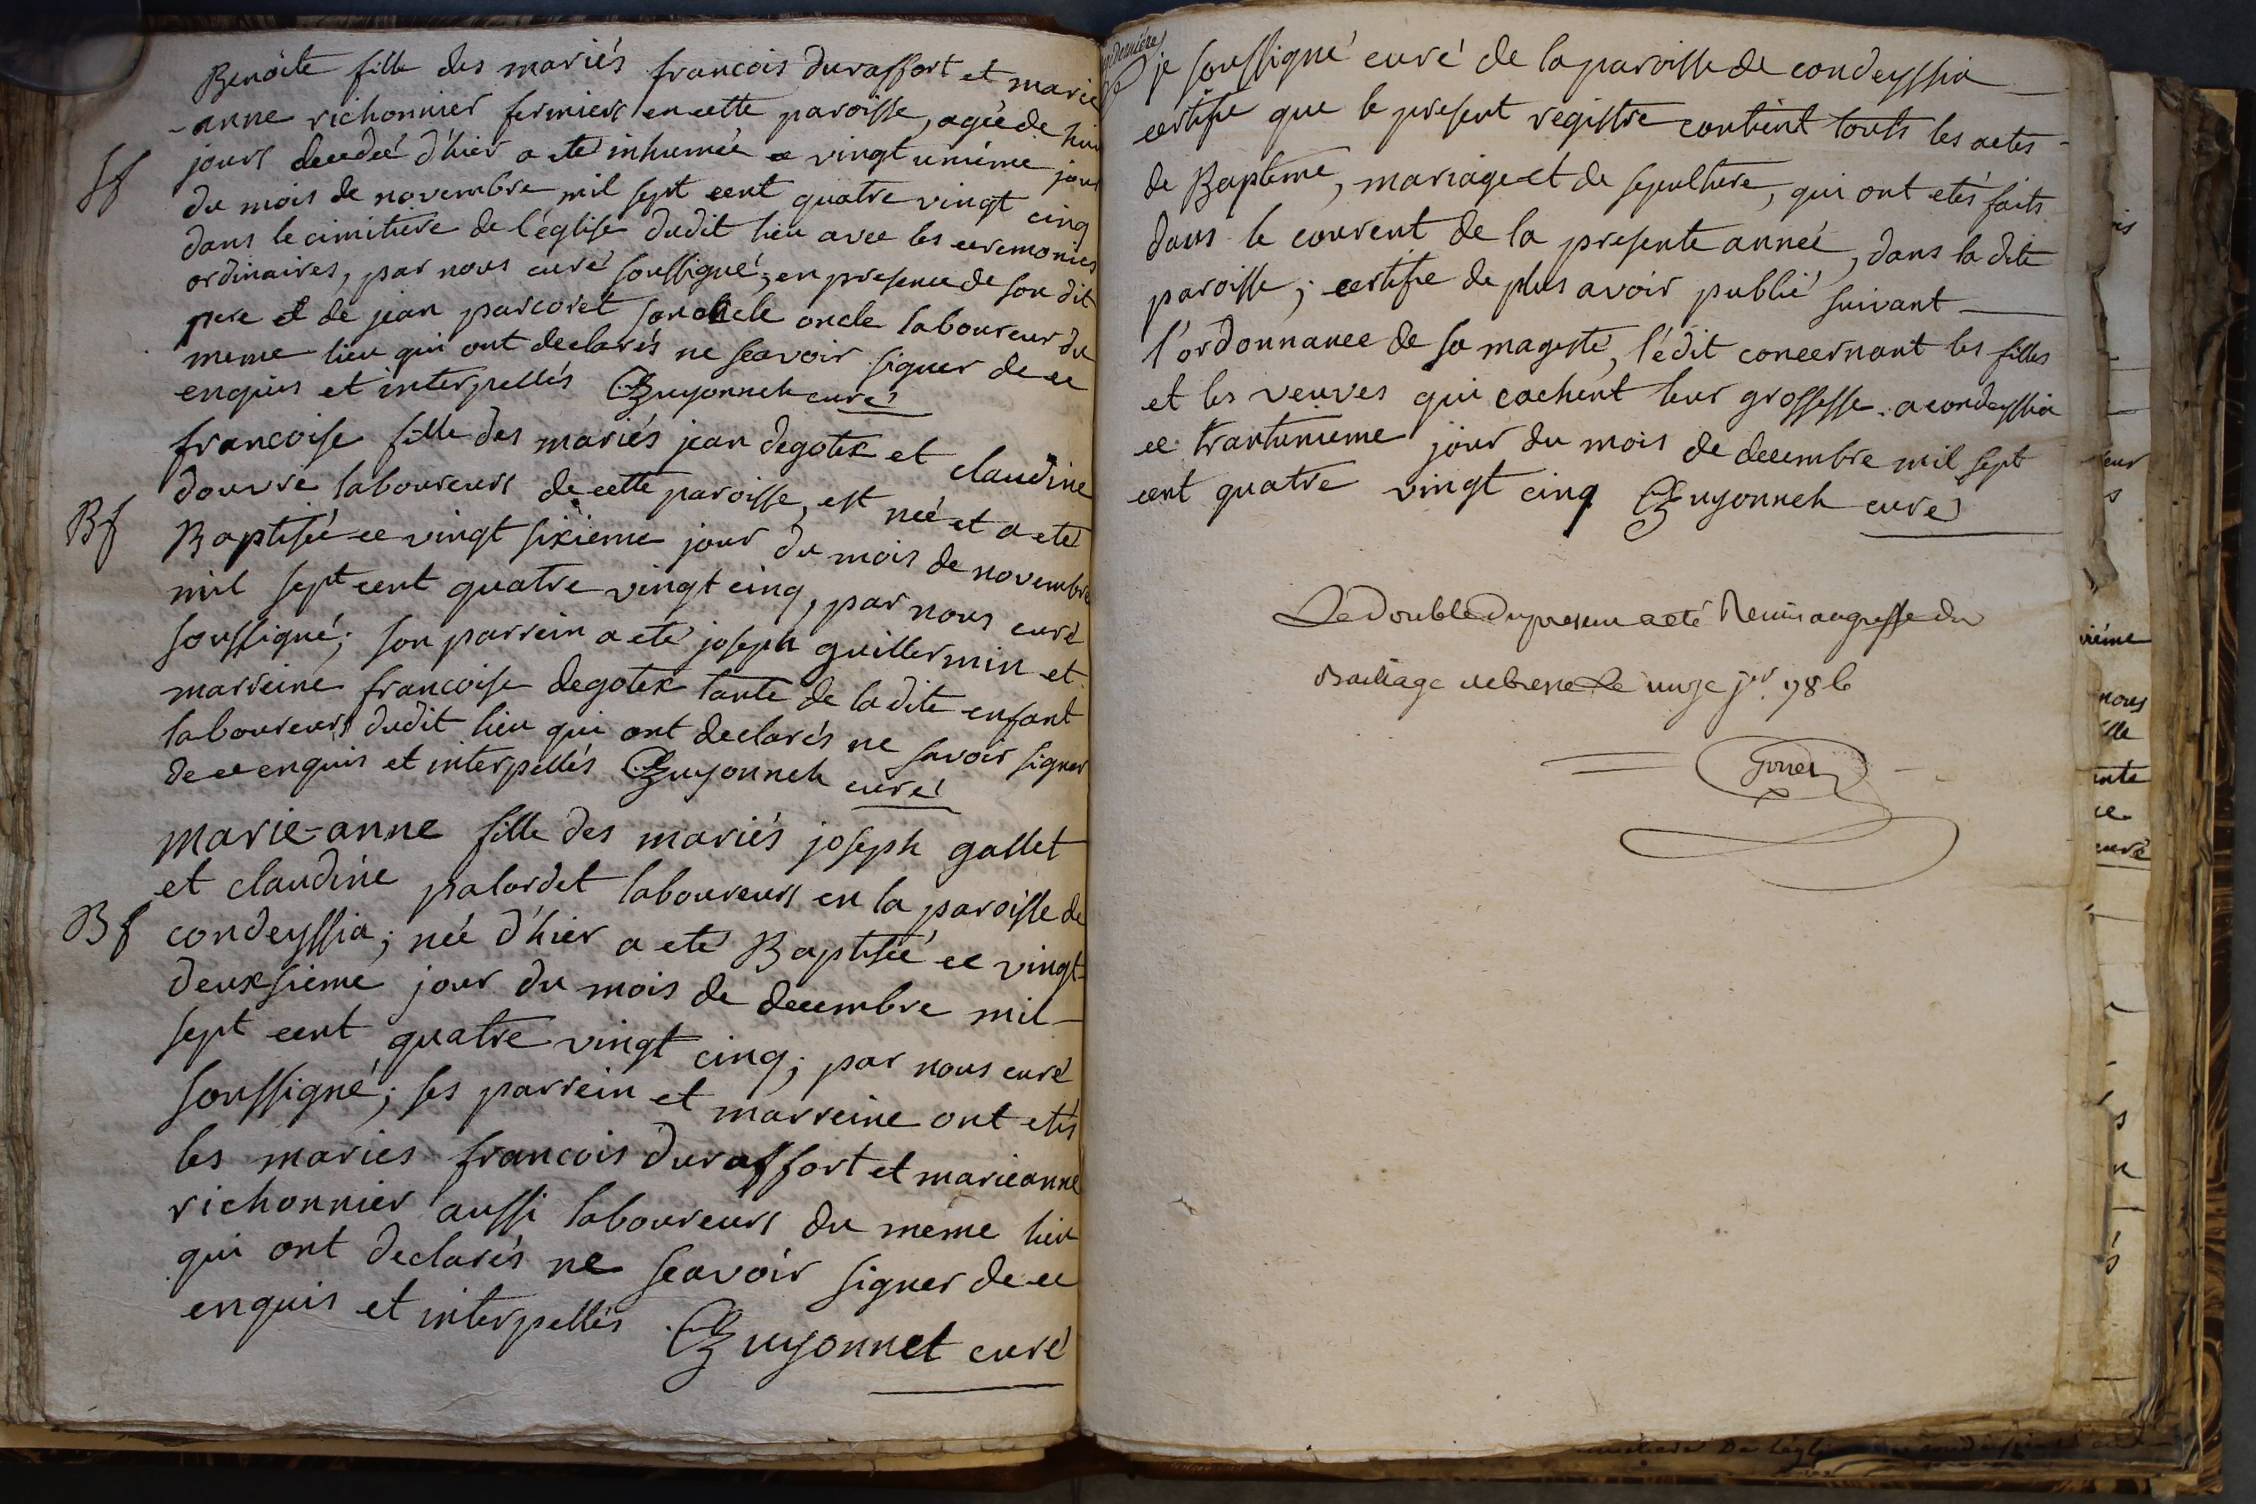 Benoite fille des mariés francois duraffort et marie
-anne richonnier fermiers en cette paroisse, agée de huit
jours decedeé d'hier a eté inhumeé ce vingt unième jour
Sf
du mois de novembre mil sept cent quatre vingt cinq
dans le cimitière de l'église dudit lieu avec les ceremonies
ordinaires, par nous curé soussigné, en presence de son dit
pere et de jean parcoret son oncle laboureur du
meme lieu qui ont declarés ne sçavoir signer de ce
enquis et interpellés Guyonnet curé
francoise fille des mariés jean degotex et claudine
douvre laboureurs de cette paroisse, est neé et a eté
Bf
Baptiseé ce vingt sixieme jour du mois de novembre
mil sept cent quatre vingt cinq, par nous curé
soussigné; son parrein a eté joseph guillermin et
marreine francoise degotex tante de la dite enfant
laboureurs dudit lieu qui ont declarés ne savoir signer
de ce enquis et interpellés Guyonnet curé
marie-anne fille des mariés joseph gallet
et claudine palordet laboureurs en la paroisse de
Bf
condeyssia; neé d'hier a eté Baptiseé ce vingt-
deuxsieme jour du mois de decembre mil
sept cent quatre vingt cinq; par nous curé
soussigné; ses parrein et marreine ont etés
les mariés francois duraffort et marieanne
richonnier aussi laboureurs du meme lieu
qui ont declarés ne sçavoir signer de ce
enquis et interpellés Guyonnet curé
derniere
je soussigné curé de la paroisse de condeyssia
certifie que le present registre contient touts les actes
de Bapteme, mariage et de sepulture, qui ont etés faits
dans le courent de la presente anneé, dans la dite
paroisse; certifie de plus avoir publié suivant
l'ordonnance de sa magesté, l'édit concernant les filles
et les veuves qui cachent leur grossesse. a condeyssia
ce trantunieme jour du mois de decembre mil sept
cent quatre vingt cinq Guyonnet curé
Le Double du present a eté Remis au greffe du
Bailliage de bresse Le unze jer 1786